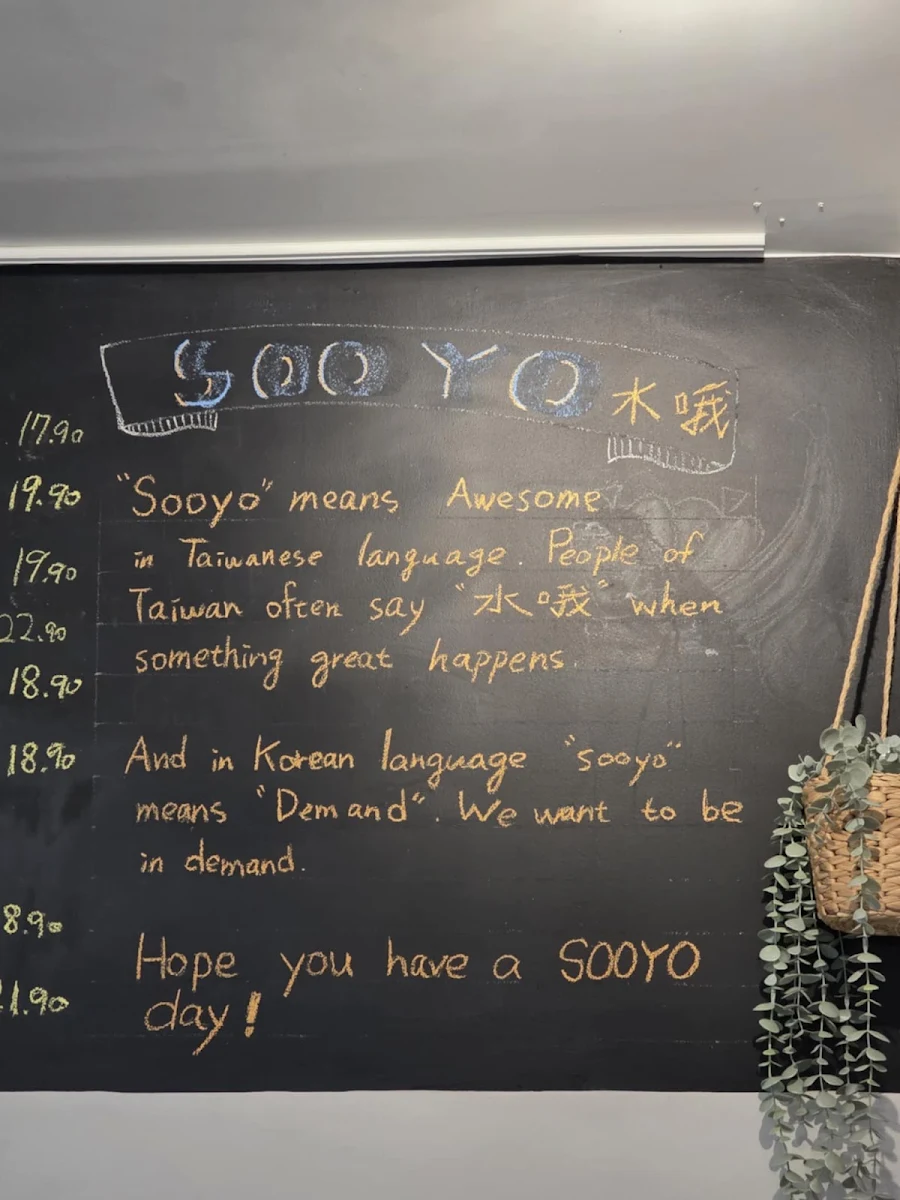 SOOYO 水哦
17.90
19.90
19.90
22.90
18.90
18.90
8.90
1.90
"Sooyo" means Awesome
in Taiwanese language. People of
Taiwan often say "水哦" when
something great happens.
And in Korean language "sooyo"
means "Demand". We want to be
in demand.
Hope you have a SOOYO
day!